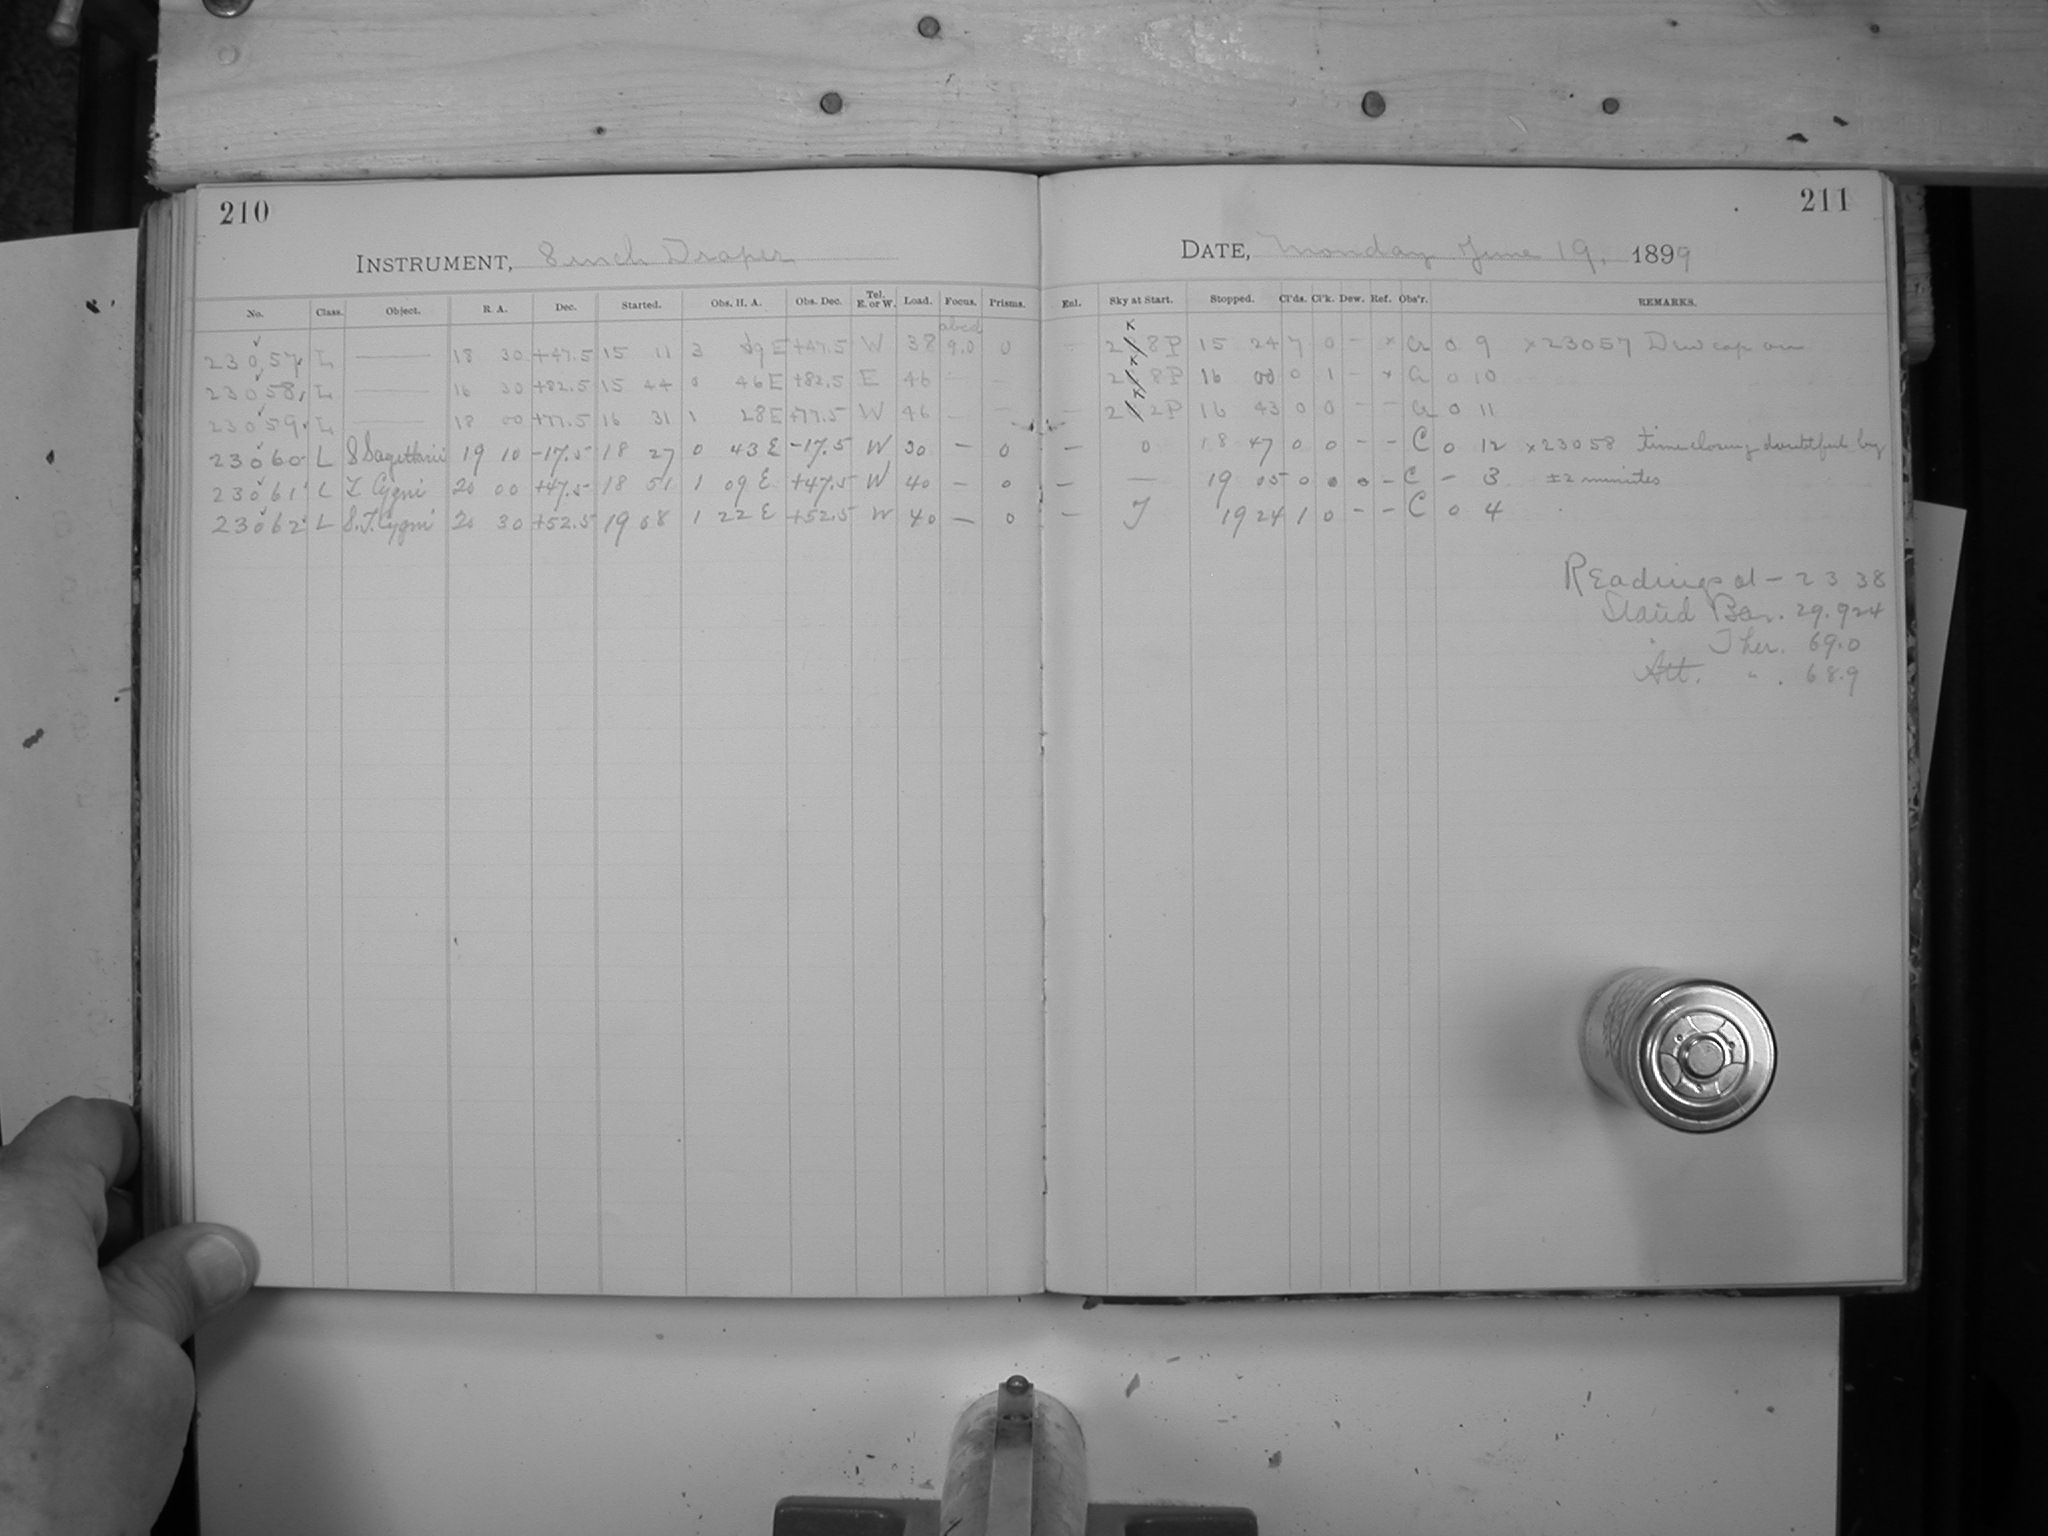 210
INSTRUMENT, 8 inch Draper
No. Class. Object. R. A. Dec. Started. Obs. H. A. Obs. Dec. Tel. E. or W. Load. Focus. Prisms.
abcd
23057 L —— 18 30 +47.5 15 11 3 19 E +47.5 W 38 9.0 0
23058 L —— 16 30 +82.5 15 44 0 46 E +82.5 E 46 — —
23059 L —— 18 00 +77.5 16 31 1 28 E +77.5 W 46 — —
23060 L S Sagittarii 19 10 -17.5 18 27 0 43 E -17.5 W 30 — 0
23061 L Z Cygni 20 00 +47.5 18 51 1 09 E +47.5 W 40 — 0
23062 L S.T. Cygni 20 30 +52.5 19 08 1 22 E +52.5 W 40 — 0
211
DATE, Monday June 19, 1899
Enl. Sky at Start. Stopped. Cl'ds. Cl'k. Dew. Ref. Obs'r. REMARKS.
— 2 K 8P 15 24 7 0 - × a 0 9 × 23057 Dew cap on
2 K 8P 16 00 0 1 - × a 0 10
— 2 K 2P 16 43 0 0 - - a 0 11
— 0 18 47 0 0 - - C 0 12 × 23058 time closing doubtful by
— — 19 05 0 0 0 - C - 3 ±2 minutes
— 19 24 1 0 - - C 0 4
Readings at - 23 38
Stand Bar. 29.924
Ther. 69.0
Att. " . 68.9